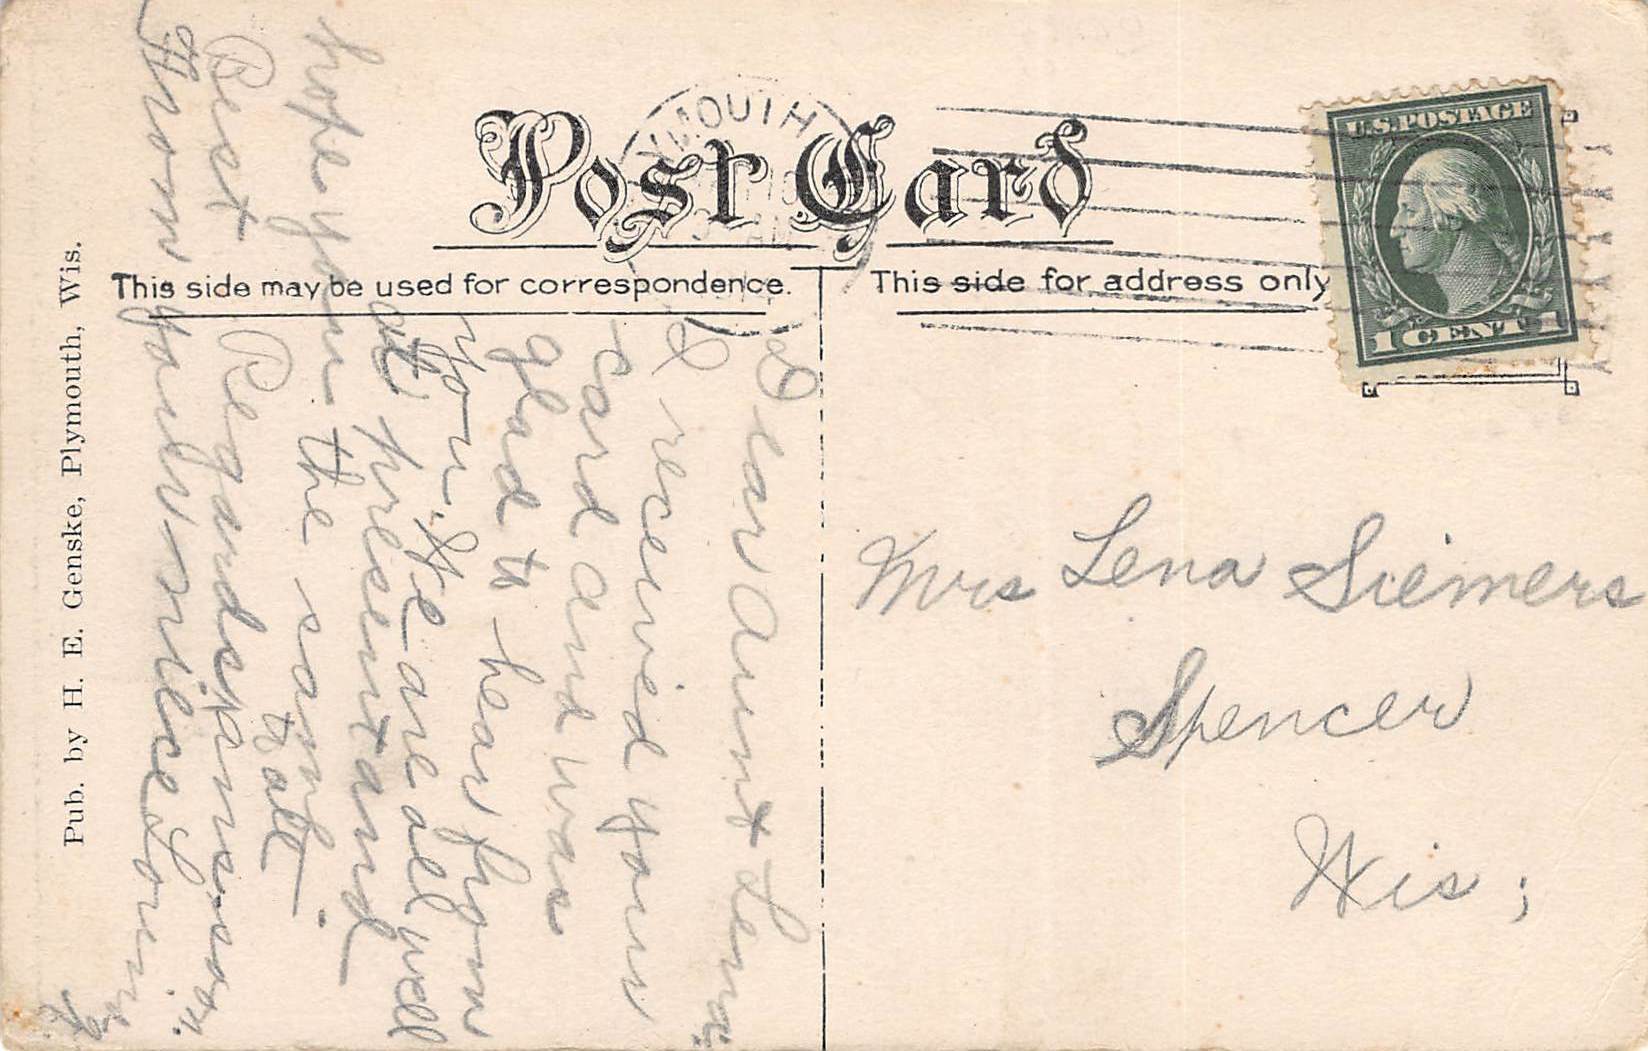 Post Card
YMOUTH
U.S. POSTAGE
1 CENT 1
This side may be used for correspondence.
This side for address only
Pub. by H. E. Genske, Plymouth, Wis.
Dear Aunt Lena;
I received your
card and was
glad to hear from
you. We are all well
at present and
hope you the same.
to all
Best Regards
From your niece
Mrs Lena Siemers
Spencer
Wis;